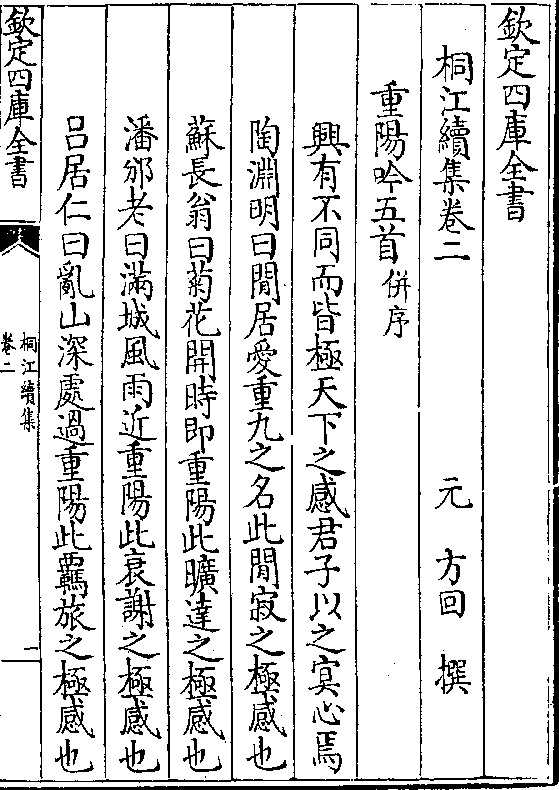 欽定四庫全書
桐江續集卷二
元 方回 撰
重陽吟五首 併序
興有不同而皆極天下之感君子以之寘心焉
陶淵明曰閒居愛重九之名此閒寂之極感也
蘇長翁曰菊花開時即重陽此曠達之極感也
潘邠老曰滿城風雨近重陽此衰謝之極感也
呂居仁曰亂山深處過重陽此羇旅之極感也
欽定四庫全書
桐江續集
卷二
一